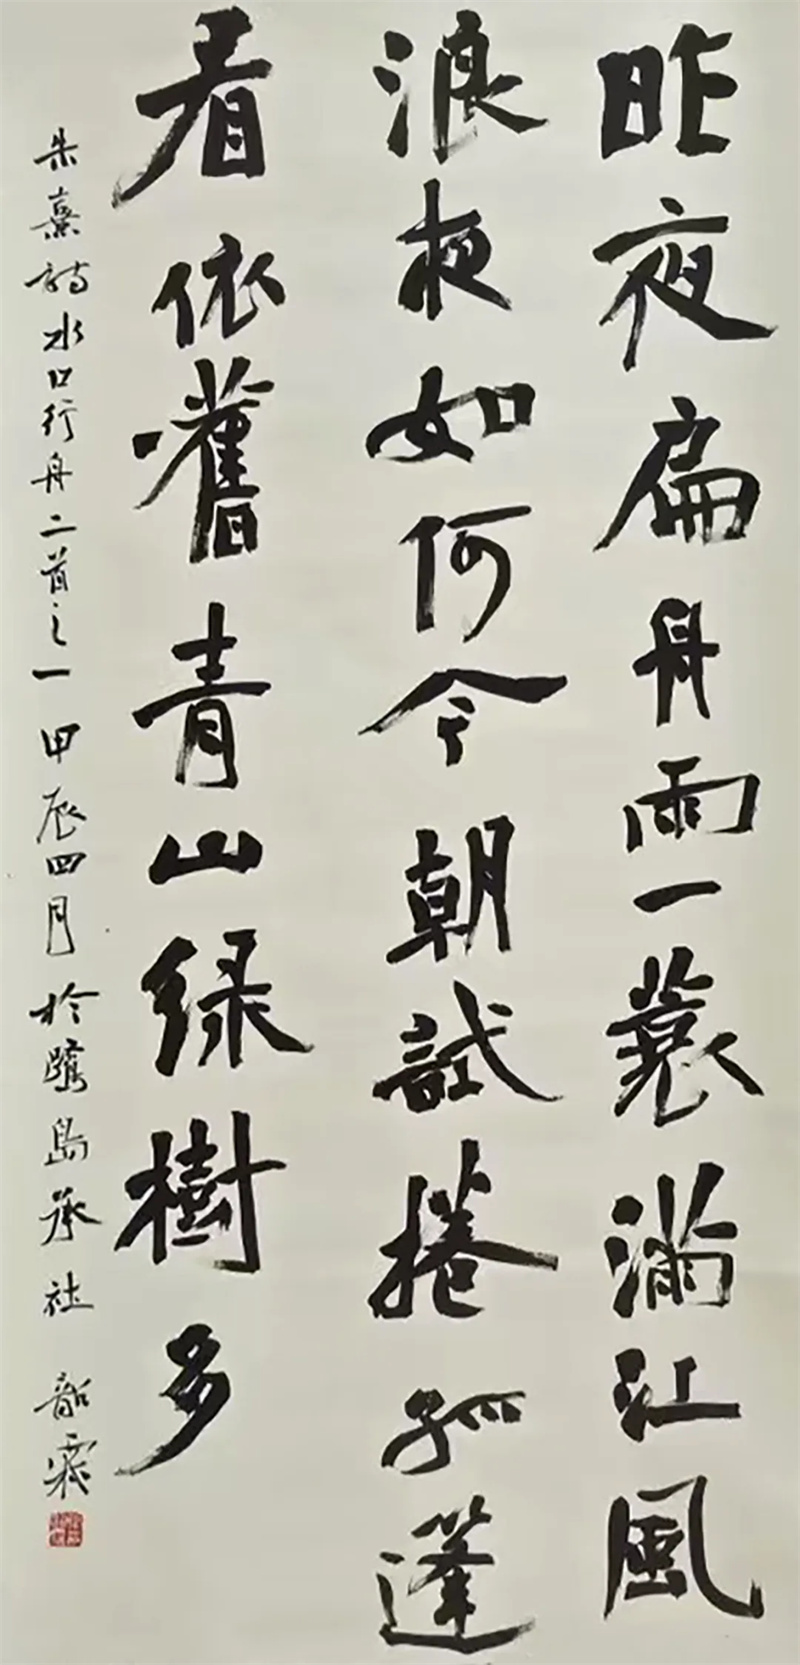 昨夜扁舟雨一蓑满江風
浪夜如何今朝試捲孤蓬
看依舊青山绿樹多
朱熹詩水口行舟二首之一甲辰四月於鹭島承社 韶霖